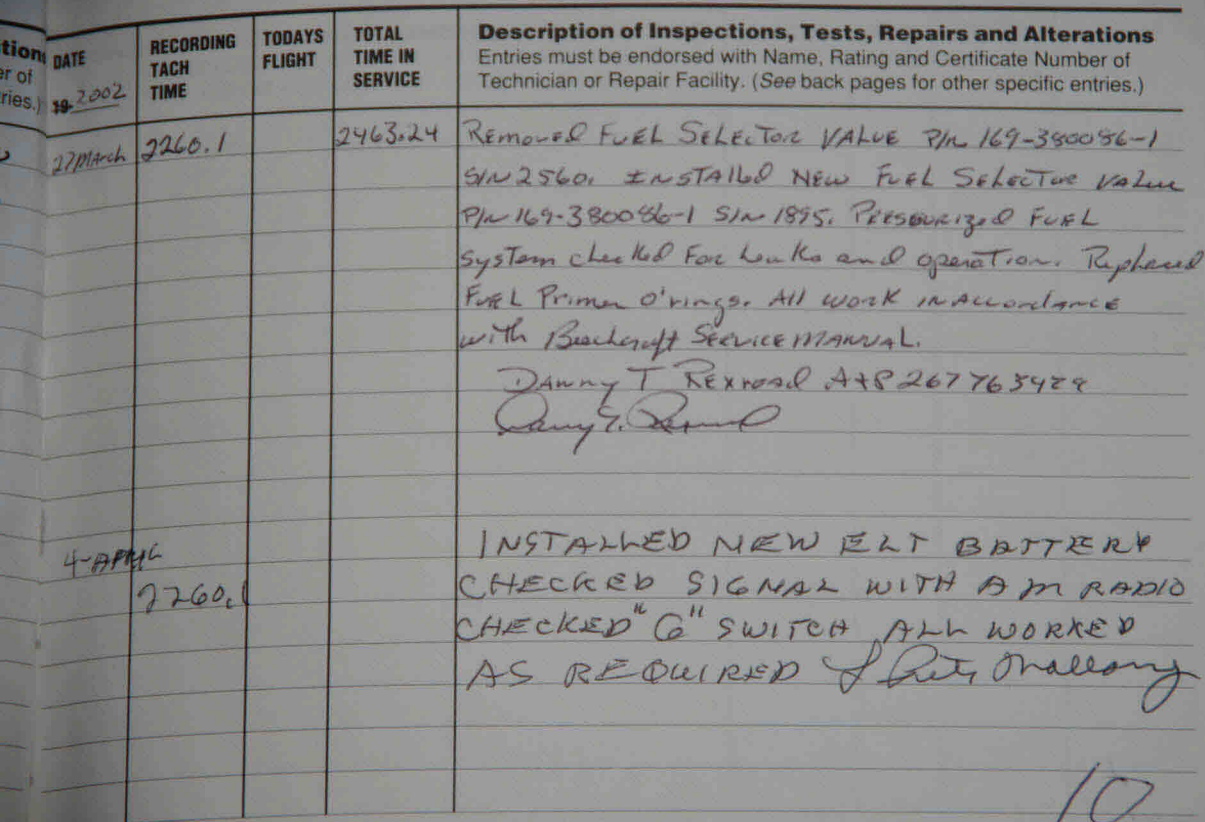 tions
er of
ries.)
DATE
19 2002
RECORDING TACH TIME
TODAYS FLIGHT
TOTAL TIME IN SERVICE
Description of Inspections, Tests, Repairs and Alterations
Entries must be endorsed with Name, Rating and Certificate Number of
Technician or Repair Facility. (See back pages for other specific entries.)
27 March 2260.1 2463.24 Removed Fuel Selector VALUE P/N 169-380086-1
S/N 2560. INSTAllEd NEW FUEL Selector Value
P/N 169-380086-1 S/N 1895. Pressurized FUEL
System checked For Leaks and operation. Replaced
FUEL Primer O'rings. All work IN Accordance
with Beechcraft SERVICE MANUAL.
DANNY T Rexroad A+P
4-APRIL INSTALLED NEW ELT BATTERY
2260.1 CHECKED SIGNAL WITH AM RADIO
CHECKED "G" SWITCH ALL WORKED
AS REQUIRED
10